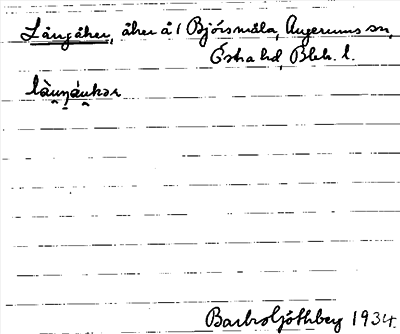 Långåker, åker å 1 Bjórsmåla, Augerums sn,
Östra hd, Blek. l.
Barbro Ljóthberg 1934.